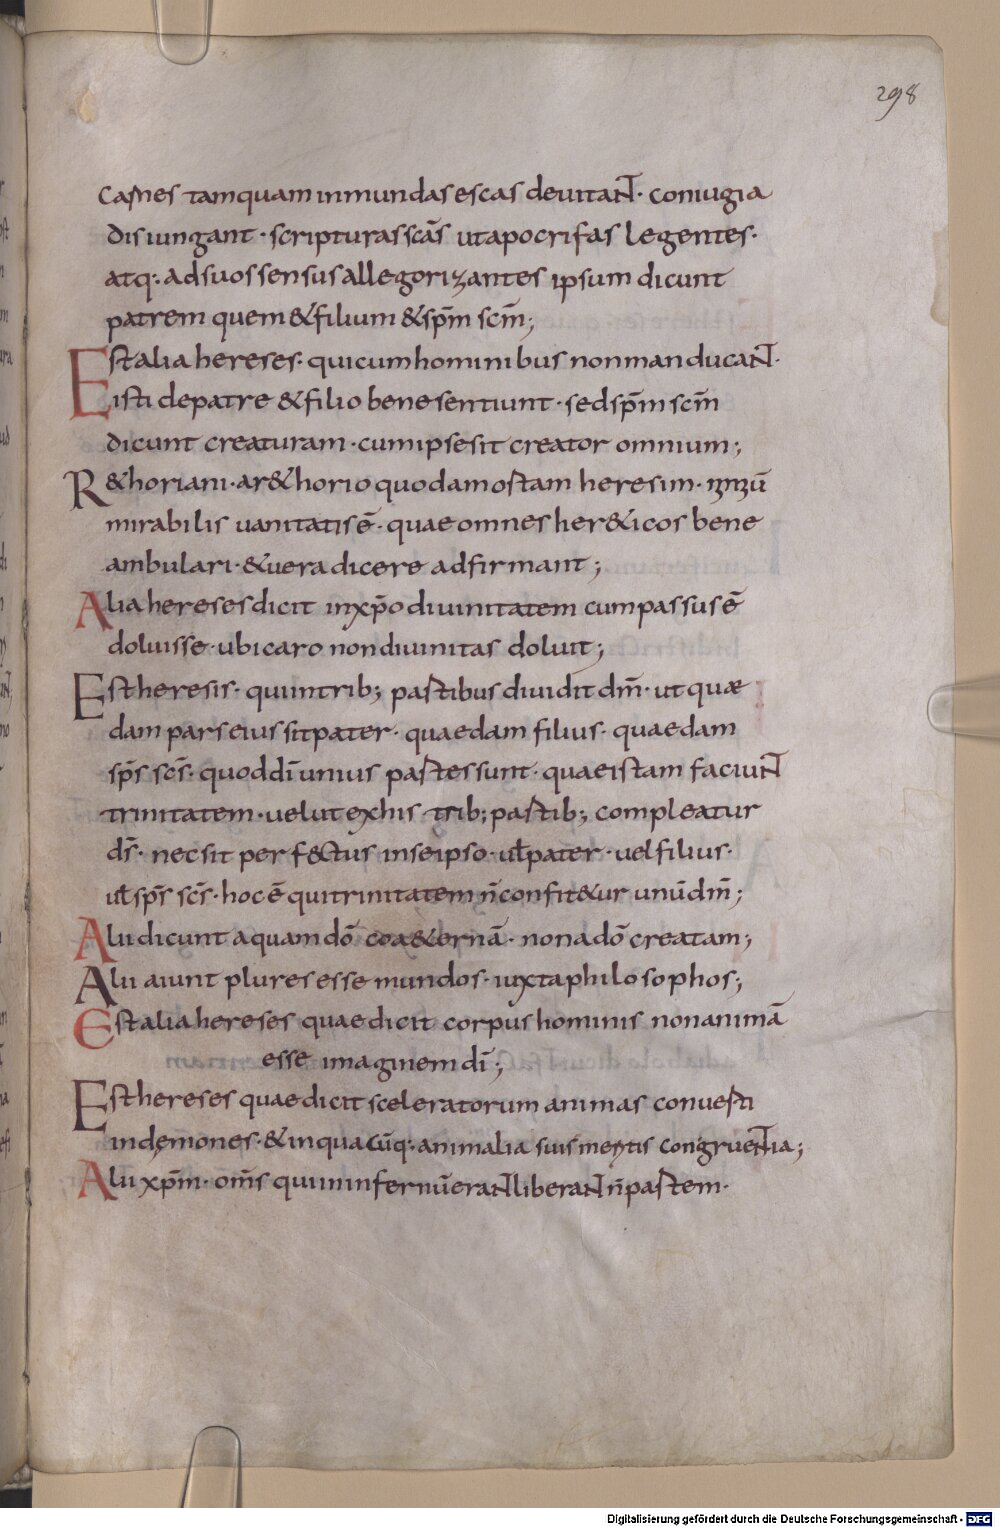 298
carnes tamquam inmundas escas deuitaNT· coniugia
disiungant· scripturas scās ut apocrifas legentes·
atq: ad suos sensus allegorizantes ipsum dicunt
patrem quem & filium & sp̄m scm̄;
Est alia hereses· qui cum hominibus non manducaNT·
eisti de patre & filio bene sentiunt· sed sp̄m scm̄
dicunt creaturam· cum ipse sit creator omnium;
R&horiani· a r&horio quodam ostam heresim·
mirabilis uanitatis ē· quae omnes her&icos bene
ambulari· & uera dicere adfirmant;
Alia hereses dicit in xp̄o diuinitatem cum passus ē
doluisse· ubi caro non diuinitas doluit;
Est heresis· qui in trib; partibus diuidit dm̄· ut quæ
dam pars eius sit pater· quaedam filius· quaedam
sp̄s scs̄· quod dī unius partes sunt· quae istam faciuNT
trinitatem· uelut ex his trib; partib; compleatur
ds̄· nec sit perfectus in se ipso· ul̄ pater· uel filius·
ul̄ sp̄s scs̄· hoc ē qui trinitatem n̄ confit&ur unū dm̄;
Alii dicunt aquam dō coa&ernā· non a dō creatam;
Alii aiunt plures esse mundos· iuxta philosophos;
Est alia hereses quae dicit corpus hominis non animā
esse imaginem dī;
Est hereses quae dicit sceleratorum animas conuerti
in dęmones· & in quacūq: animalia suis meritis congrueNTia;
Alii xp̄m· om̄s qui in inferno fuēraNT liberaNT n̄ partem·
Digitalisierung gefördert durch die Deutsche Forschungsgemeinschaft - DFG